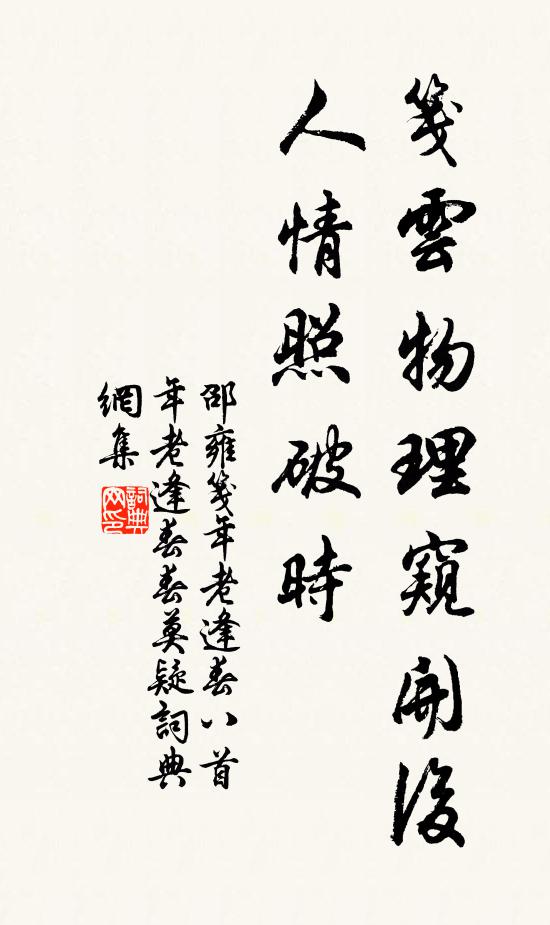 箋雲物理窺開後
人情照破時
邵雍箋年老逢春八首
年老逢春春莫疑詞典
網集
詞典
网印